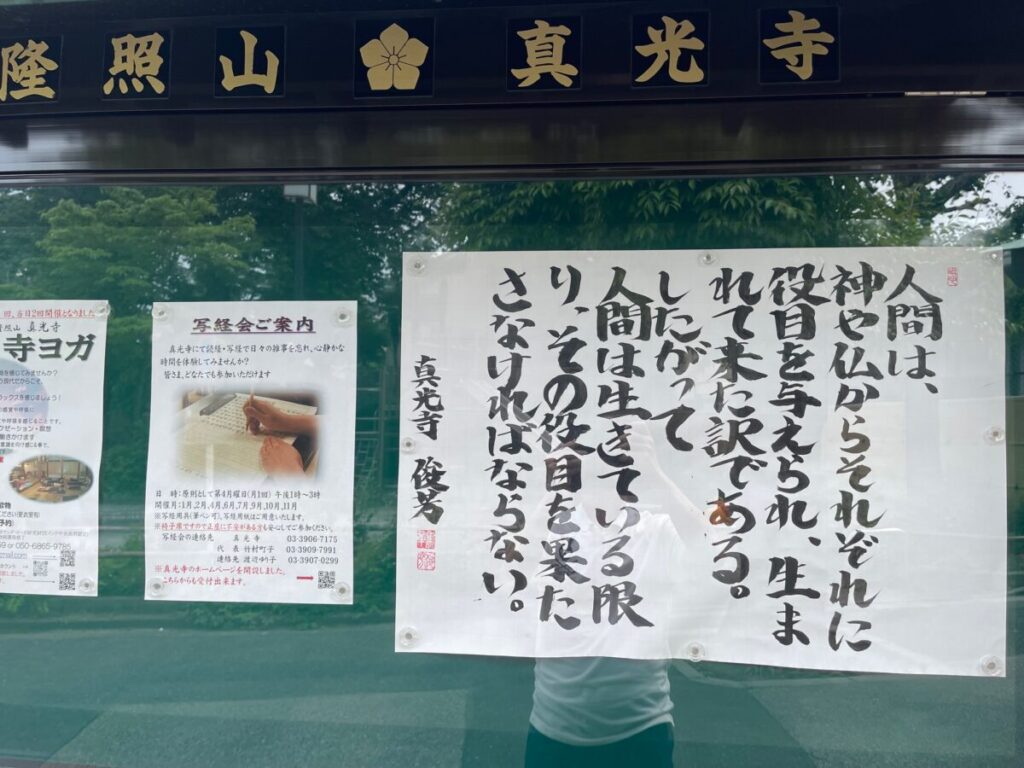 隆照山 真光寺
人間は、
神や仏からそれぞれに
役目を与えられ、生ま
れて来た訳である。
したがって
人間は生きている限
り、その役目を果た
さなければならない。
真光寺 俊芳
写経会ご案内
真光寺にて読経・写経で日々の雑事を忘れ、心静かな
時間を体験してみませんか?
皆さま、どなたでも参加いただけます
日 時:原則として第4月曜日(月1回) 午後1時~3時
開催月:1月,2月,4月,6月,7月,9月,10月,11月
※写経用具(筆ペン可)、写経用紙はご用意いたします。
※椅子席ですので正座に不安がある方も安心してご参加ください。
写経会の連絡先 真光寺 03-3906-7175
代表 竹村町子 03-3909-7991
連絡先 渡辺ゆり子 03-3907-0299
※真光寺のホームページを開設しました。
こちらからも受付出来ます。
回、各日2回開催となりました
照山 真光寺
寺ヨガ
を感じてみませんか?
の現代だからこそ、
ラックスを感じましょう!